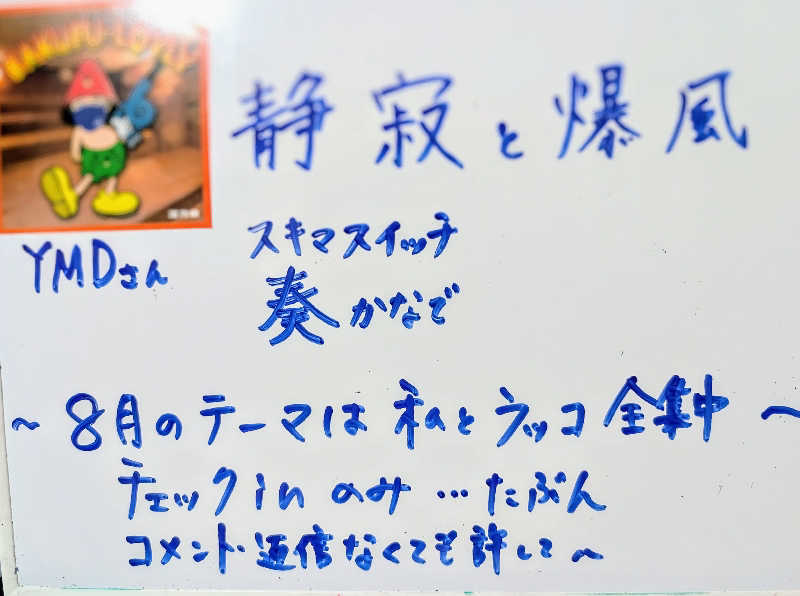 BAKUFU-LOVELY
静寂と爆風
YMDさん
スキマスイッチ
奏かなで
～8月のテーマは私とラッコ全集中～
チェックinのみ…たぶん
コメント返信なくても許して～